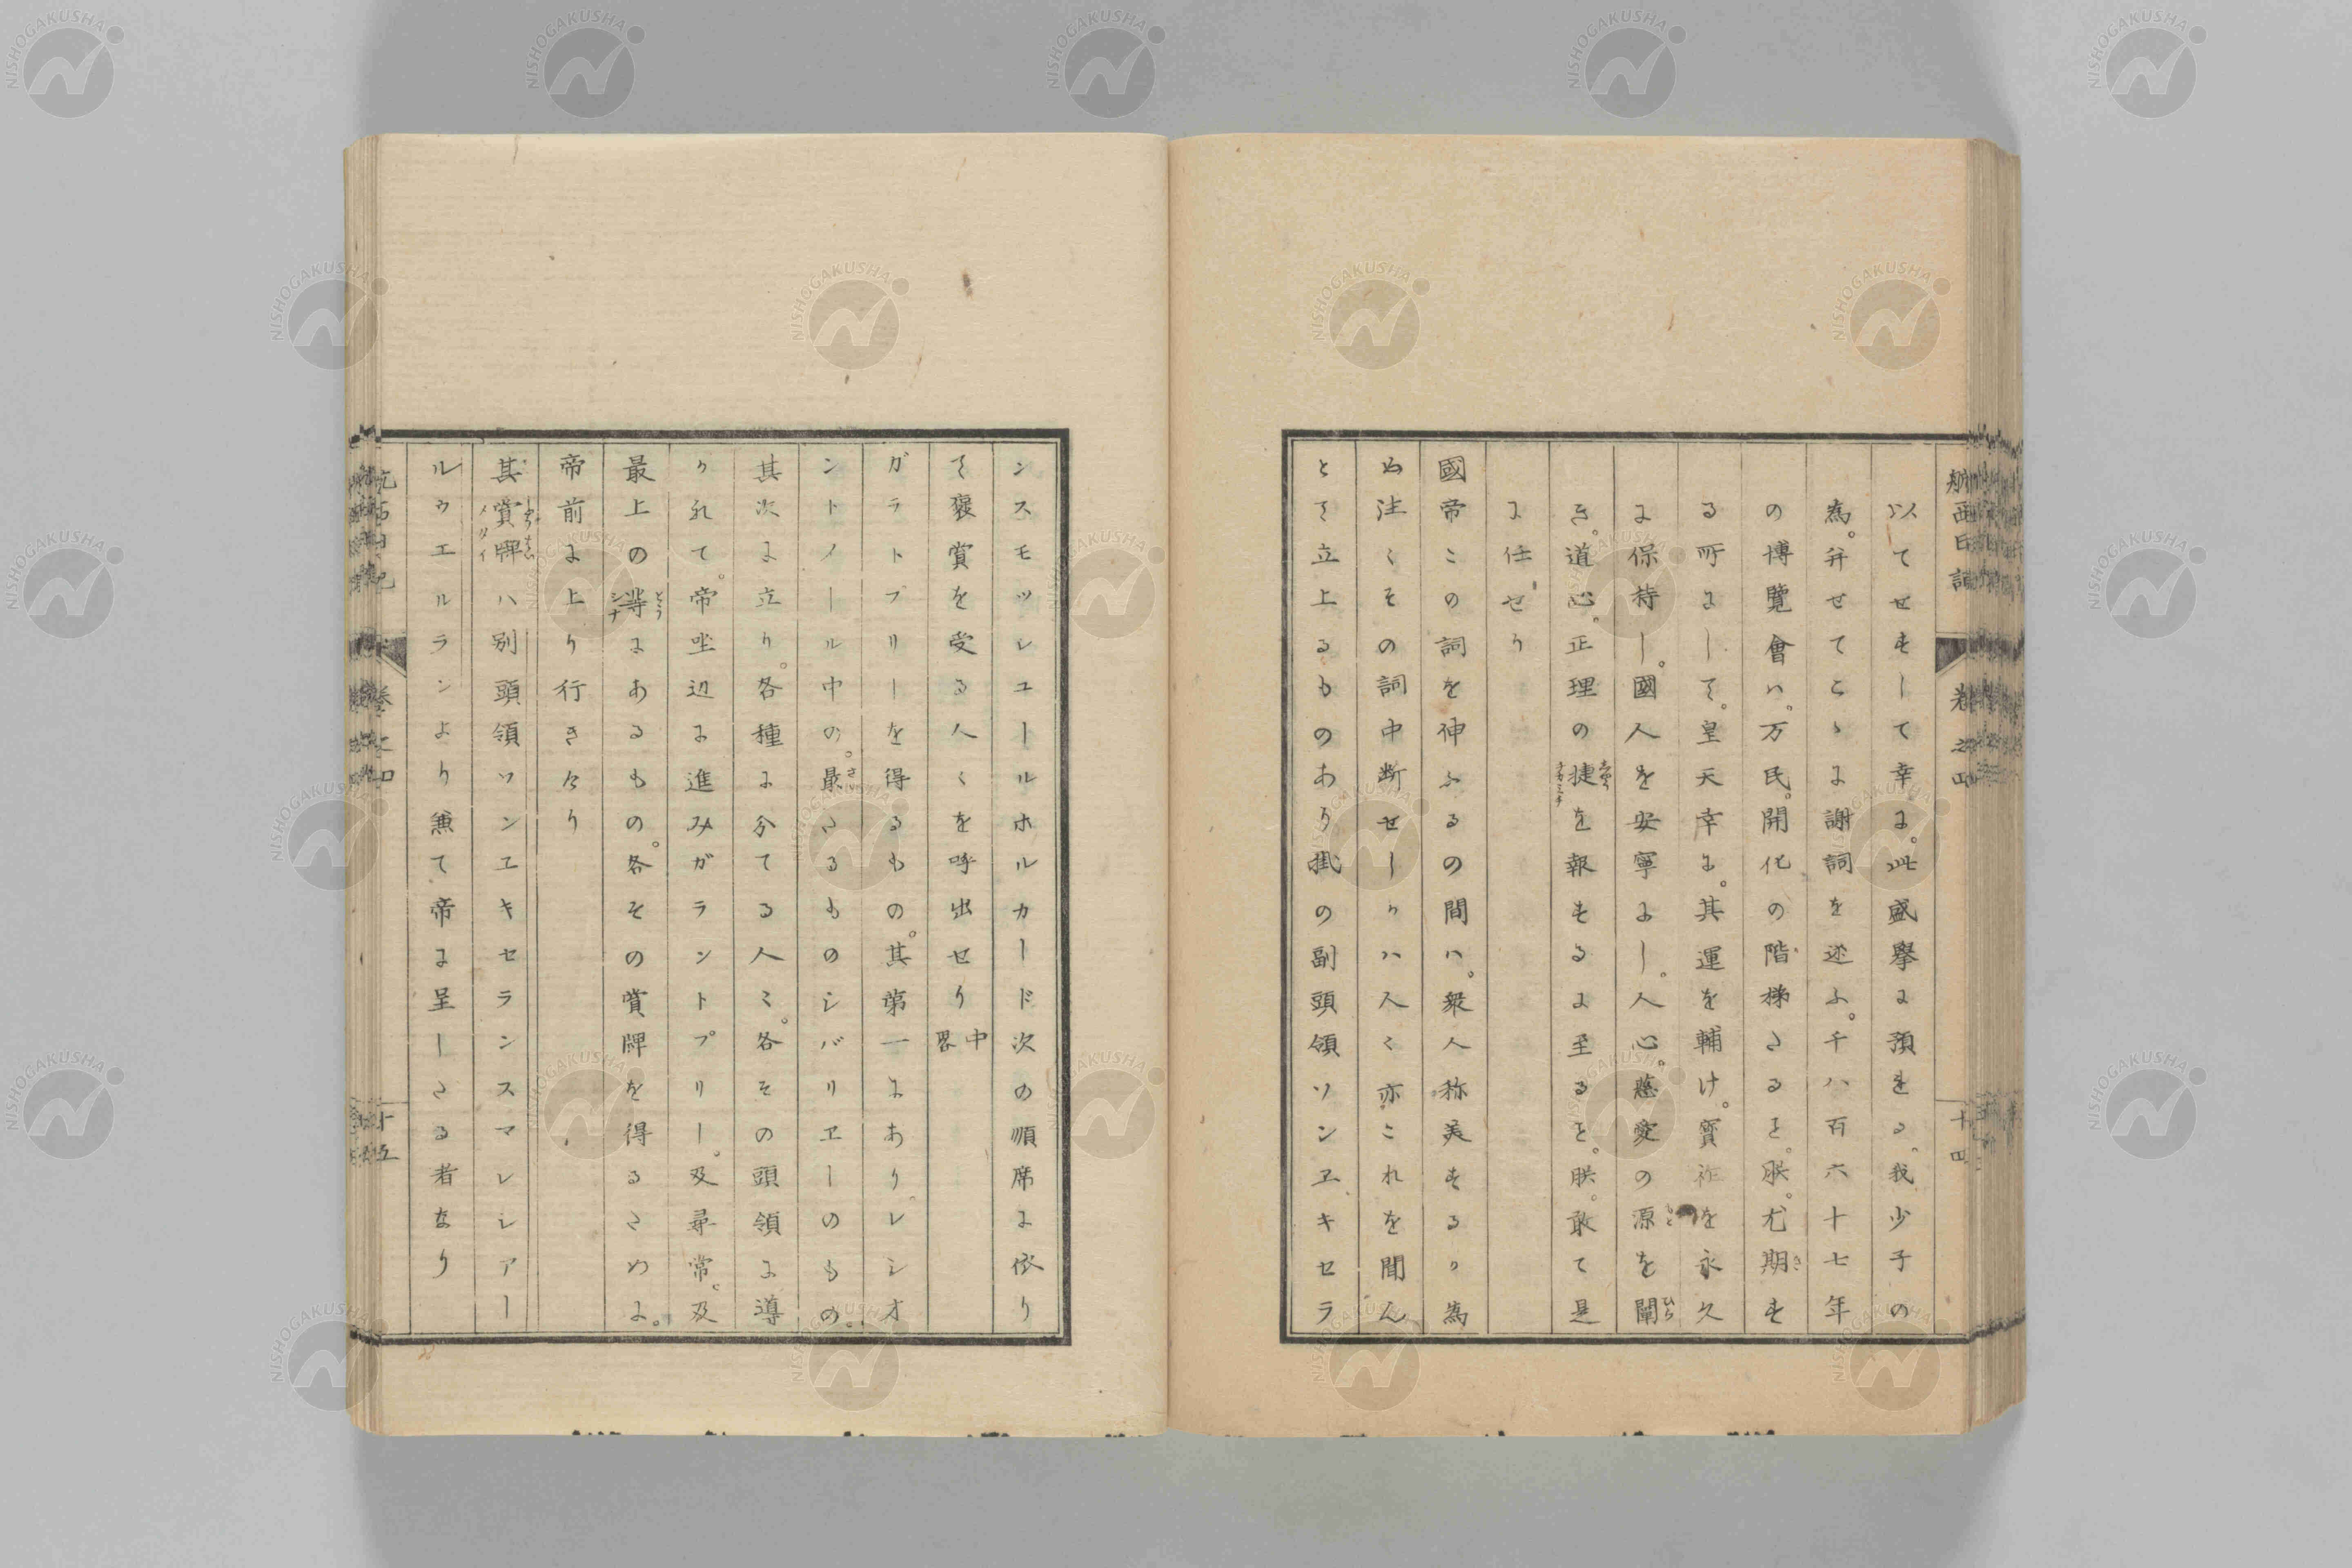 航西日記 卷之四 十四
以てせすして幸に。此盛擧に預をる、我少子の
為。并せてこゝに謝詞を述ふ。千八百六十七年
の博覽會ハ。万民。開化の階梯たるを。朕。尤期す
る所にして。皇天幸に。其運を輔け。寳祚を永久
に保持し。國人を安寧にし。人心。慈愛の源を闡
き。道心。正理の捷を報するに至るを。朕。敢て是
に任せり
國帝この詞を伸ふるの間ハ。衆人称美するり為
め注くその詞中断せしりハ人く亦これを聞ん
とて立上るものあり掛の副頭領ソンヱキセラ
ンスモツシユールホルカード次の順席に依り
て褒賞を受る人くを呼出せり中畧
ガラトプリーを得るもの。其第一にあり。レシオ
ントノール中の。最たるものシバリヱーのもの。
其次に立り。各種に分てる人ミ。各その頭領に導
りれて。帝坐辺に進みガラントプリー。及尋常。及
最上の等にあるもの。各その賞牌を得るために。
帝前に上り行きけり
其賞牌ハ別頭領ソンヱキセランスマレシアー
ルウエルランより兼て帝に呈したる者なり
卷之四 十五